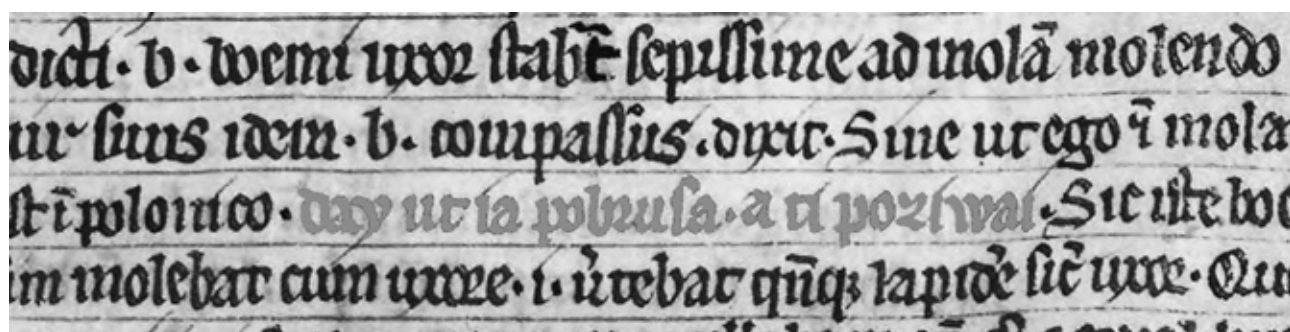 dicti · b · boemi uxor stabēt sepissime ad molā molendo
uir suus idem · b · compassus · dixit · Sine ut ego ī mola
st ī polonico · day ut ia pobrusa · a ti poziwai · Sic iste boe
im molebat cum uxore · i · uͬtebat qn̄qꝫ lapidē sic̄ uxor · Qu